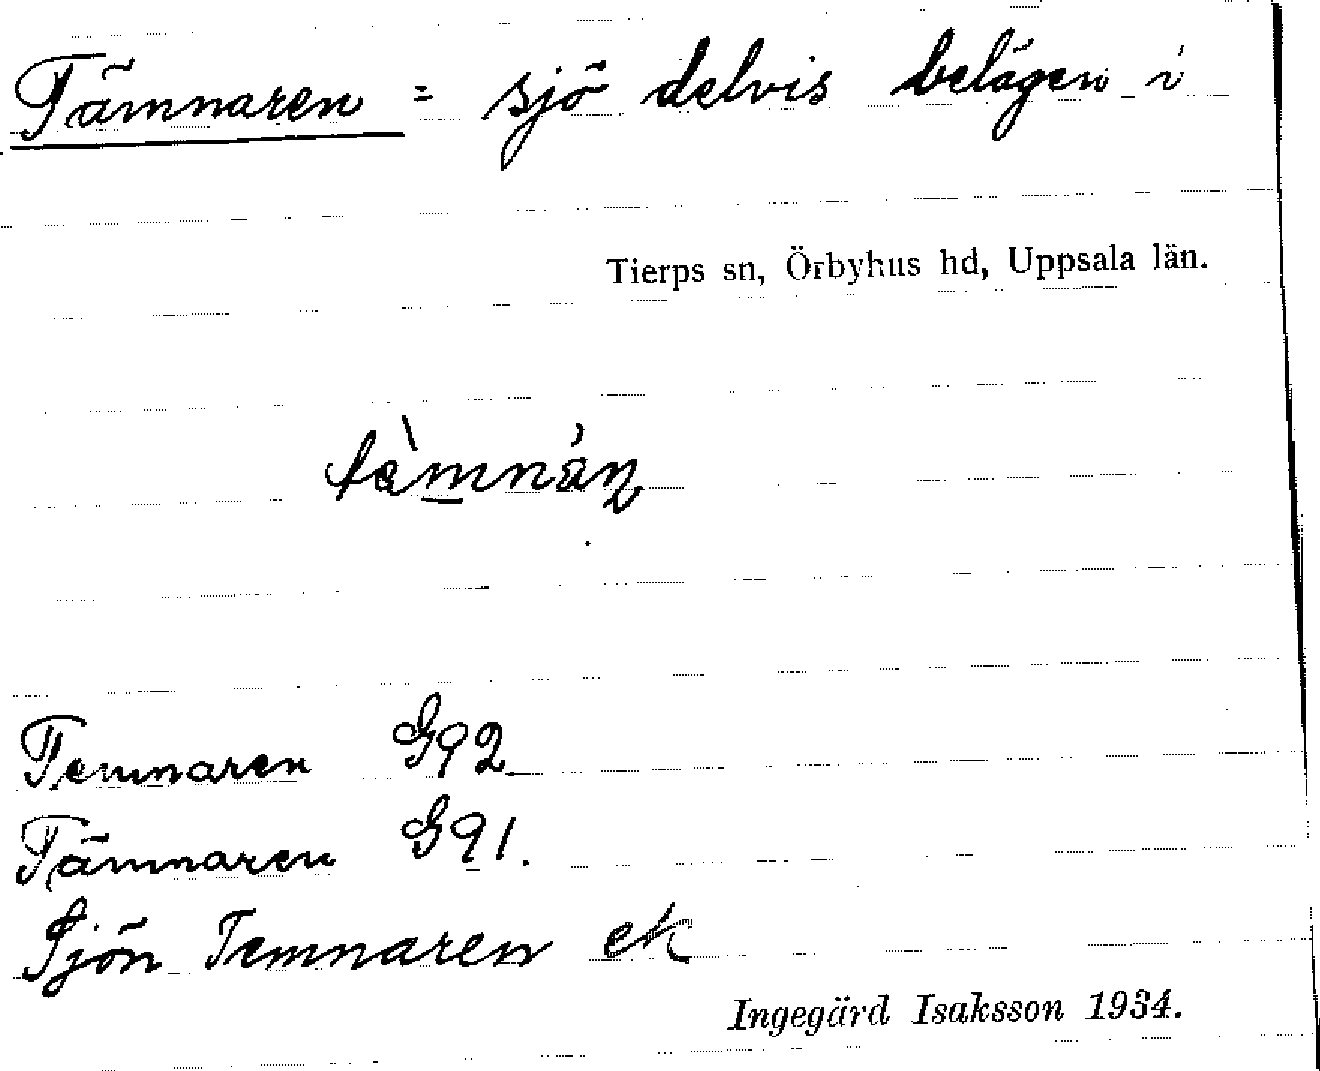 Tämnaren = sjö delvis belägen i
Tierps sn, Örbyhus hd, Uppsala län.
Temnaren G92
Tämnaren G91.
Sjön Temnaren ek
Ingegärd Isaksson 1934.